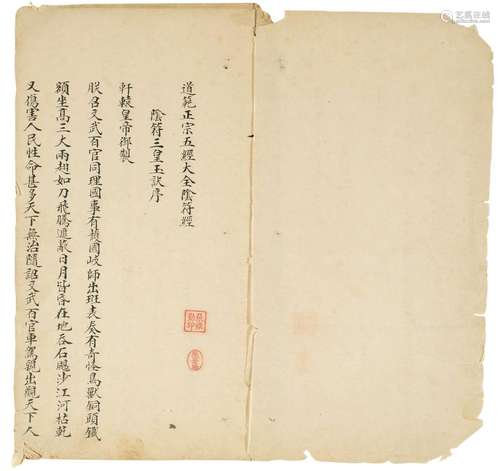 道範正宗五經大全陰符經
陰符三皇玉訣序
軒轅皇帝御製
朕召文武百官同理國事有護國岐師出班表奏有奇怪鳥獸銅頭鐵
額坐高三大兩翅如刀飛騰遮蔽日月皆昏在地吞石颺沙江河枯乾
又傷害人民性命甚多天下無治隨詔文武百官車駕親出觀天下人